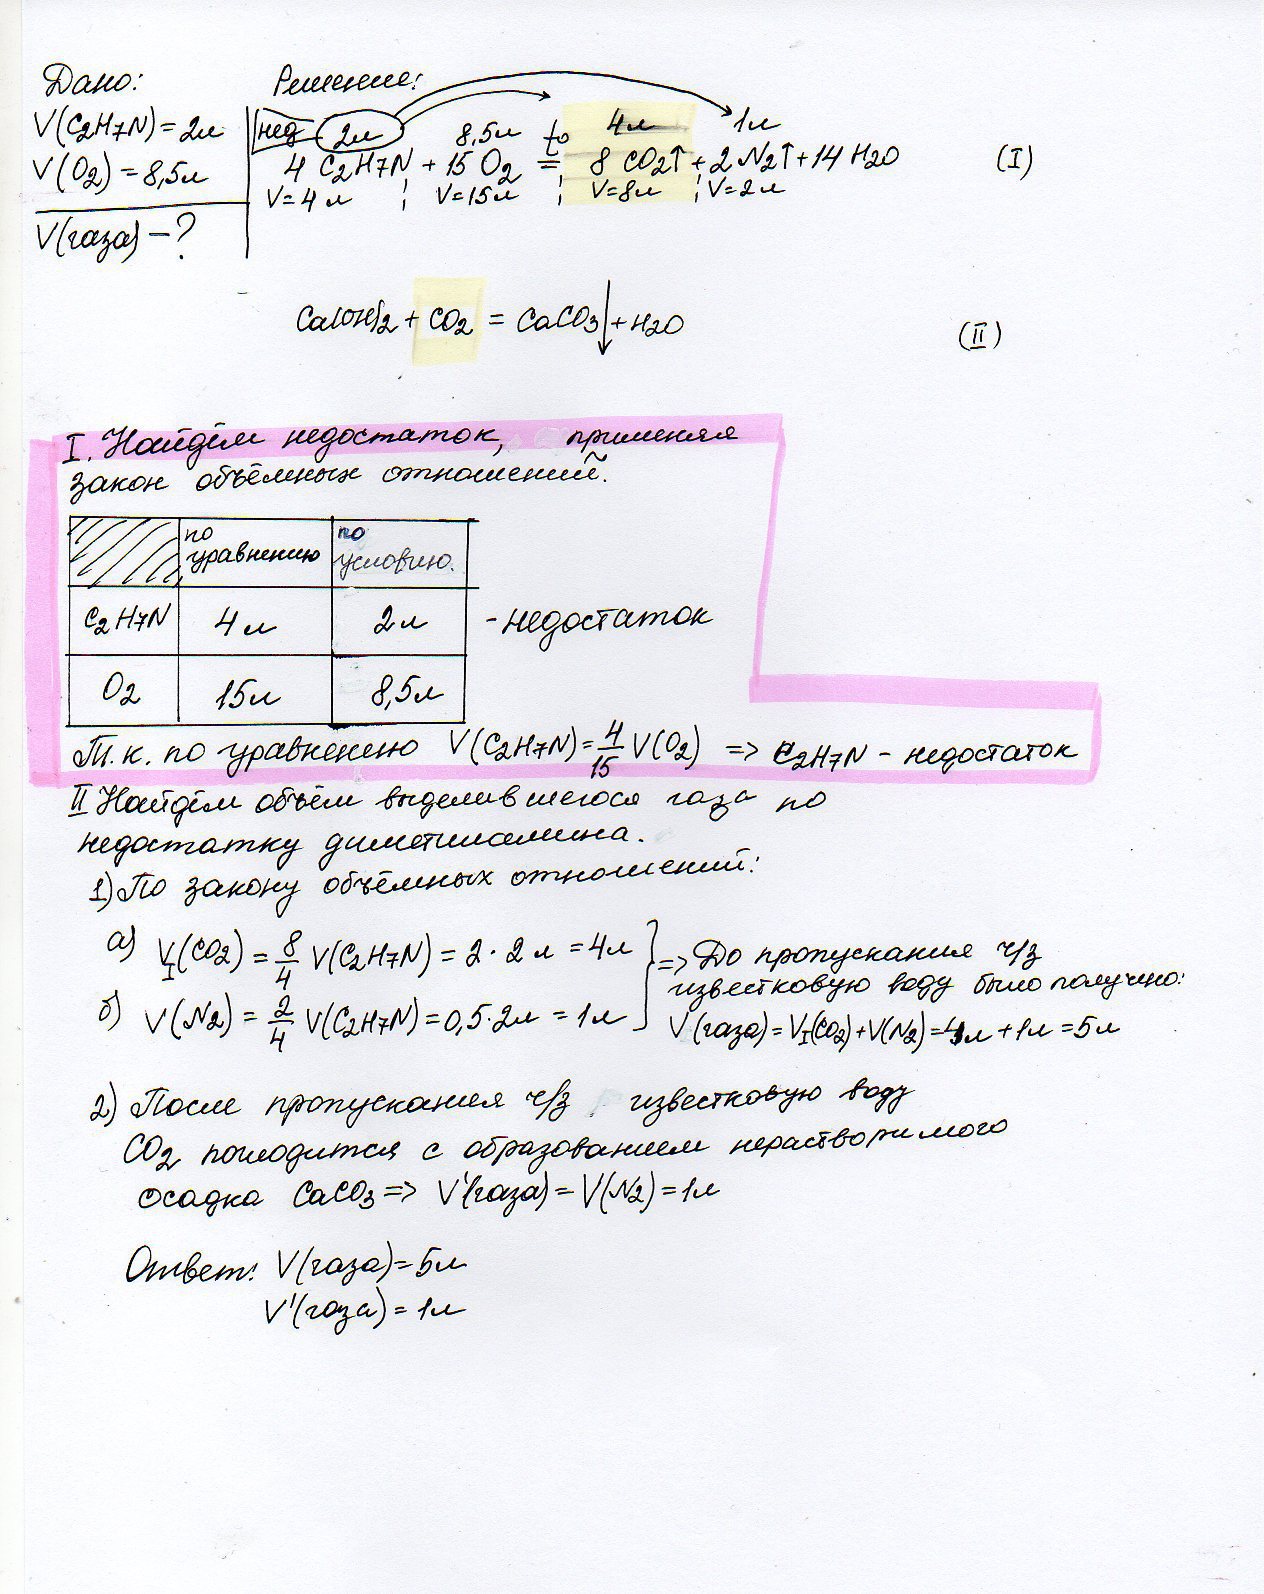 Дано:
V(C2H7N)=2л
V(O2)=8,5л
V(газа)-?
Решение:
нед 2л 8,5л t° 4л 1л
4 C2H7N + 15 O2 = 8 CO2↑ + 2 N2↑ + 14 H2O (I)
V=4 л ; V=15л ; V=8л ; V=2л
Ca(OH)2 + CO2 = CaCO3↓ + H2O (II)
I. Найдём недостаток, применяя
закон объёмных отношений.
по уравнению по условию.
C2H7N 4л 2л - недостаток
O2 15л 8,5л
Т.к. по уравнению V(C2H7N)=4/15 V(O2) => C2H7N - недостаток
II Найдём объём выделившегося газа по
недостатку диметиламина.
1) По закону объёмных отношений:
а) VI(CO2) = 8/4 V(C2H7N) = 2 · 2 л = 4л
б) V(N2) = 2/4 V(C2H7N) = 0,5·2л = 1л
=> До пропускания ч/з
известковую воду было получено:
V(газа) = VI(CO2)+V(N2)=4л+1л=5л
2) После пропускания ч/з известковую воду
CO2 поглодится с образованием нерастворимого
осадка CaCO3 => V'(газа) = V(N2) = 1л
Ответ: V(газа)=5л
V'(газа) = 1л